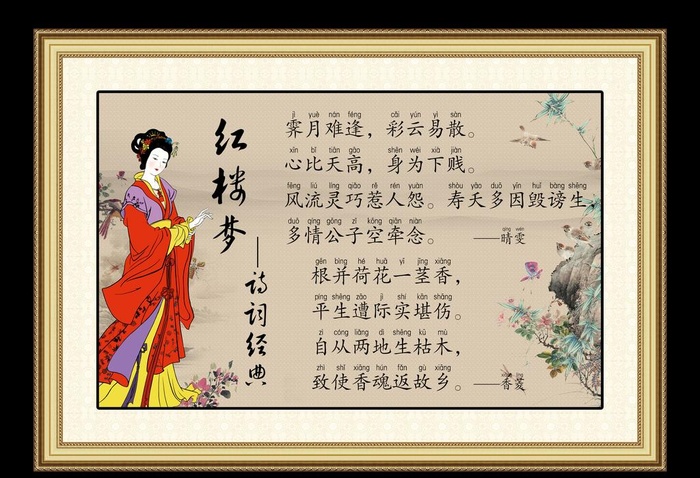 红楼梦
——诗词经典
jì yuè nán féng cǎi yún yì sàn
霁月难逢，彩云易散。
xīn bǐ tiān gāo shēn wéi xià jiàn
心比天高，身为下贱。
fēng liú líng qiǎo rě rén yuàn shòu yāo duō yīn huǐ bàng shēng
风流灵巧惹人怨。寿夭多因毁谤生，
duō qíng gōng zǐ kōng qiān niàn
多情公子空牵念。
qíng wén
——晴雯
gēn bìng hé huā yī jīng xiāng
根并荷花一茎香，
píng shēng zāo jì shí kān shāng
平生遭际实堪伤。
zì cóng liǎng dì shēng kū mù
自从两地生枯木，
zhì shǐ xiāng hún fǎn gù xiāng
致使香魂返故乡。
——香菱